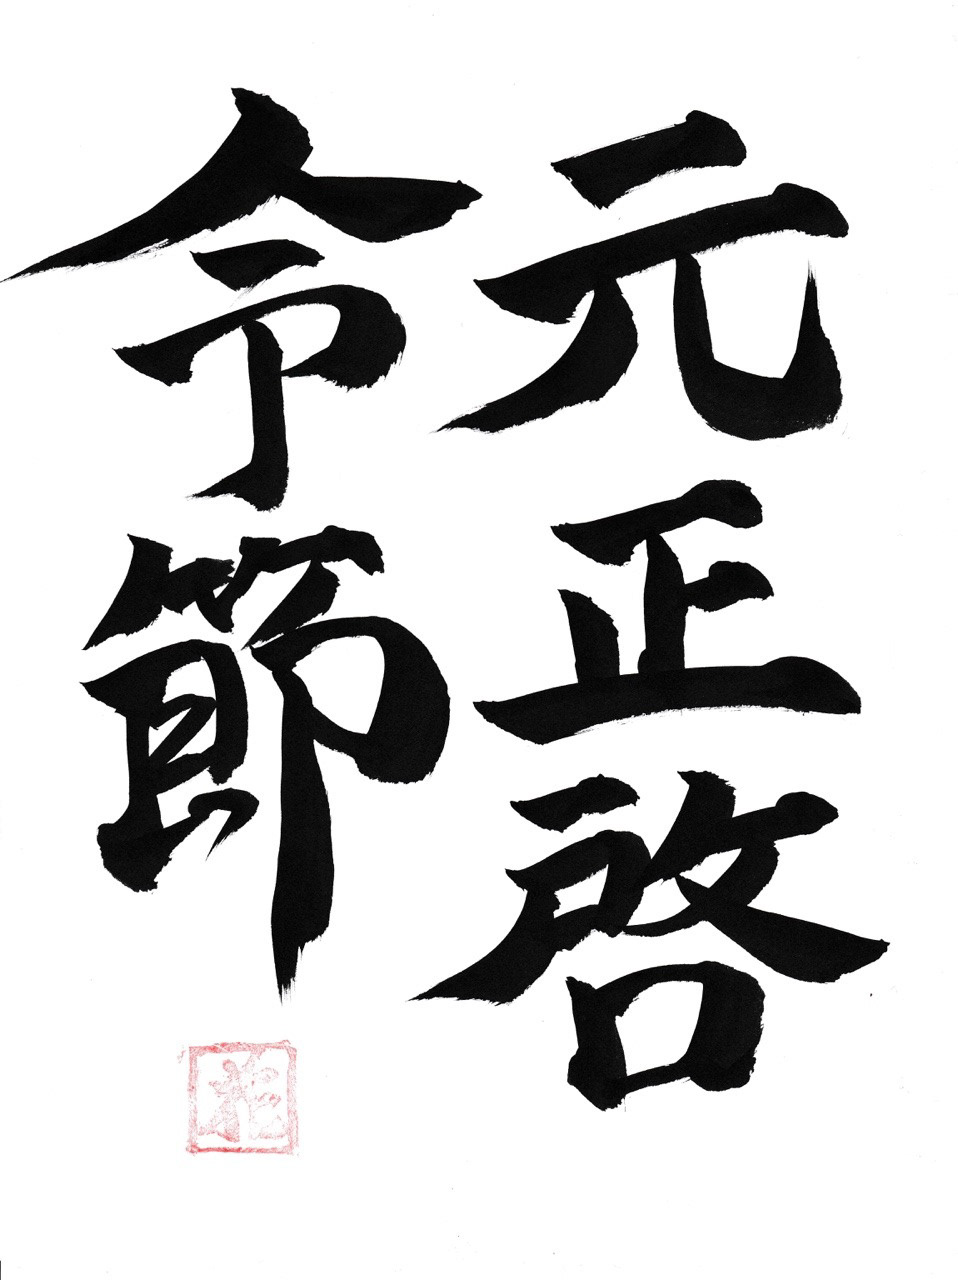 元正啓
令節